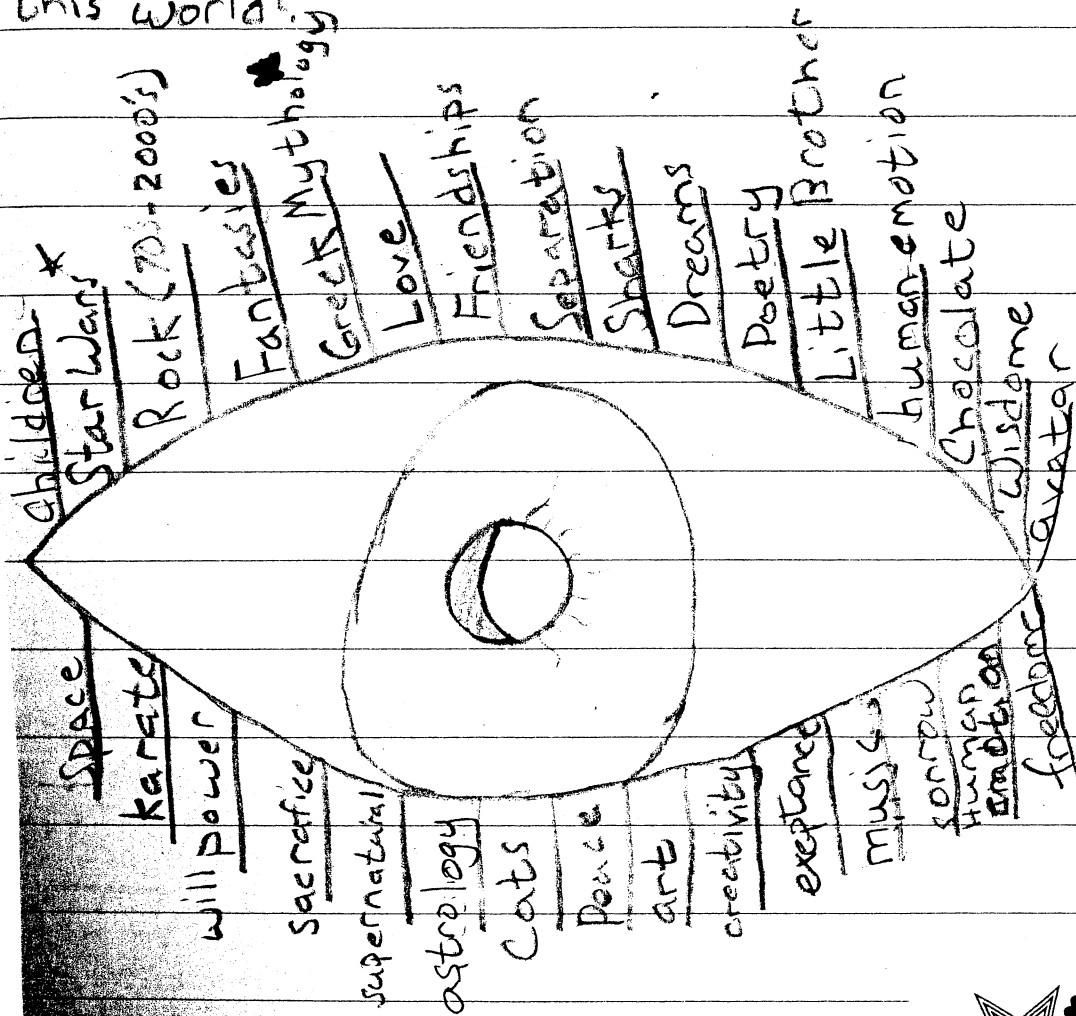 this world!
children
Star Wars
Rock (70s-2000's)
Fantasies
Greek Mythology
Love
Friendships
Separation
Sharks
Dreams
Poetry
Little Brother
human emotion
Chocolate
Wisdome
avatar
Space
karate
will power
sacrafice
supernaturall
astrology
Cats
Peace
art
creativity
exeptance
music
sorrow
Human
freedome